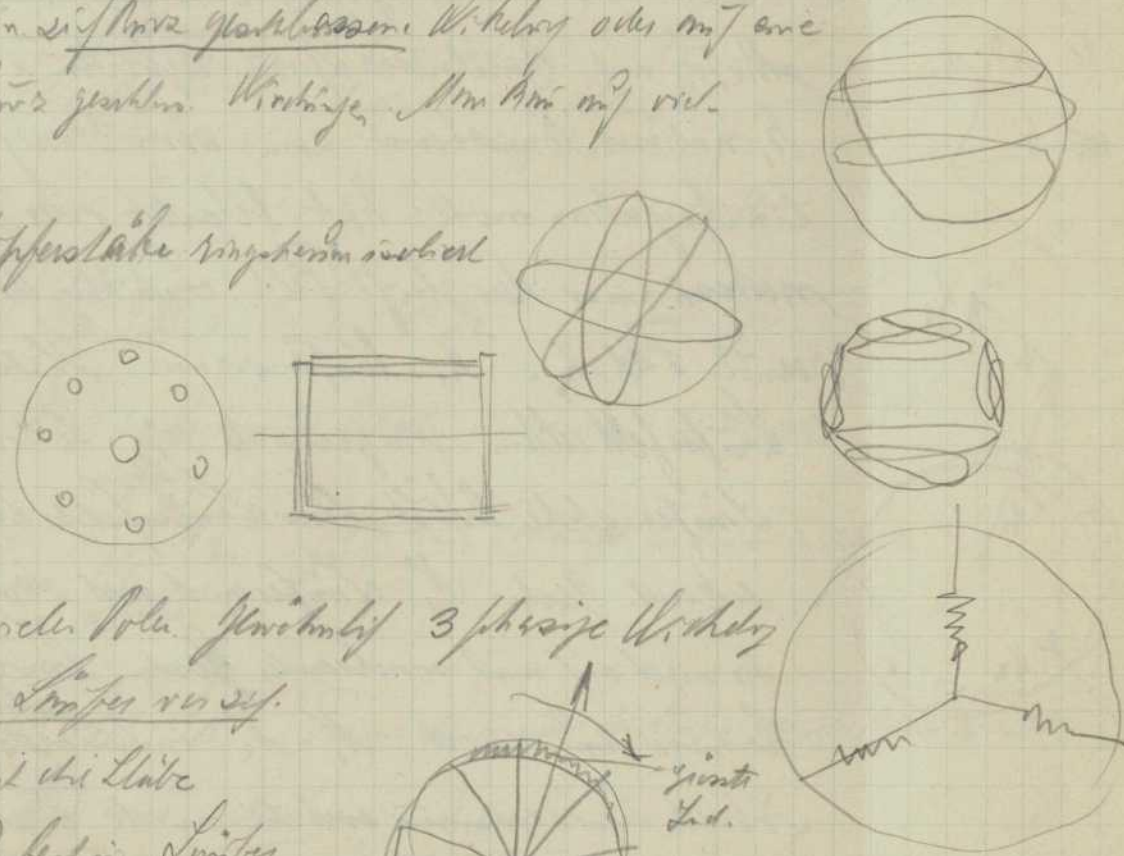 n. sich kurz geschlossene Wickelung oder auf eine
urz geschloss. Windungen. Man kann auf viel-
pferstäbe ringsherum isoliert
vieler Polen. Gewöhnlich 3 phasige Wickelung
Läufer
die Stäbe
Läufer
grösste
Ind.